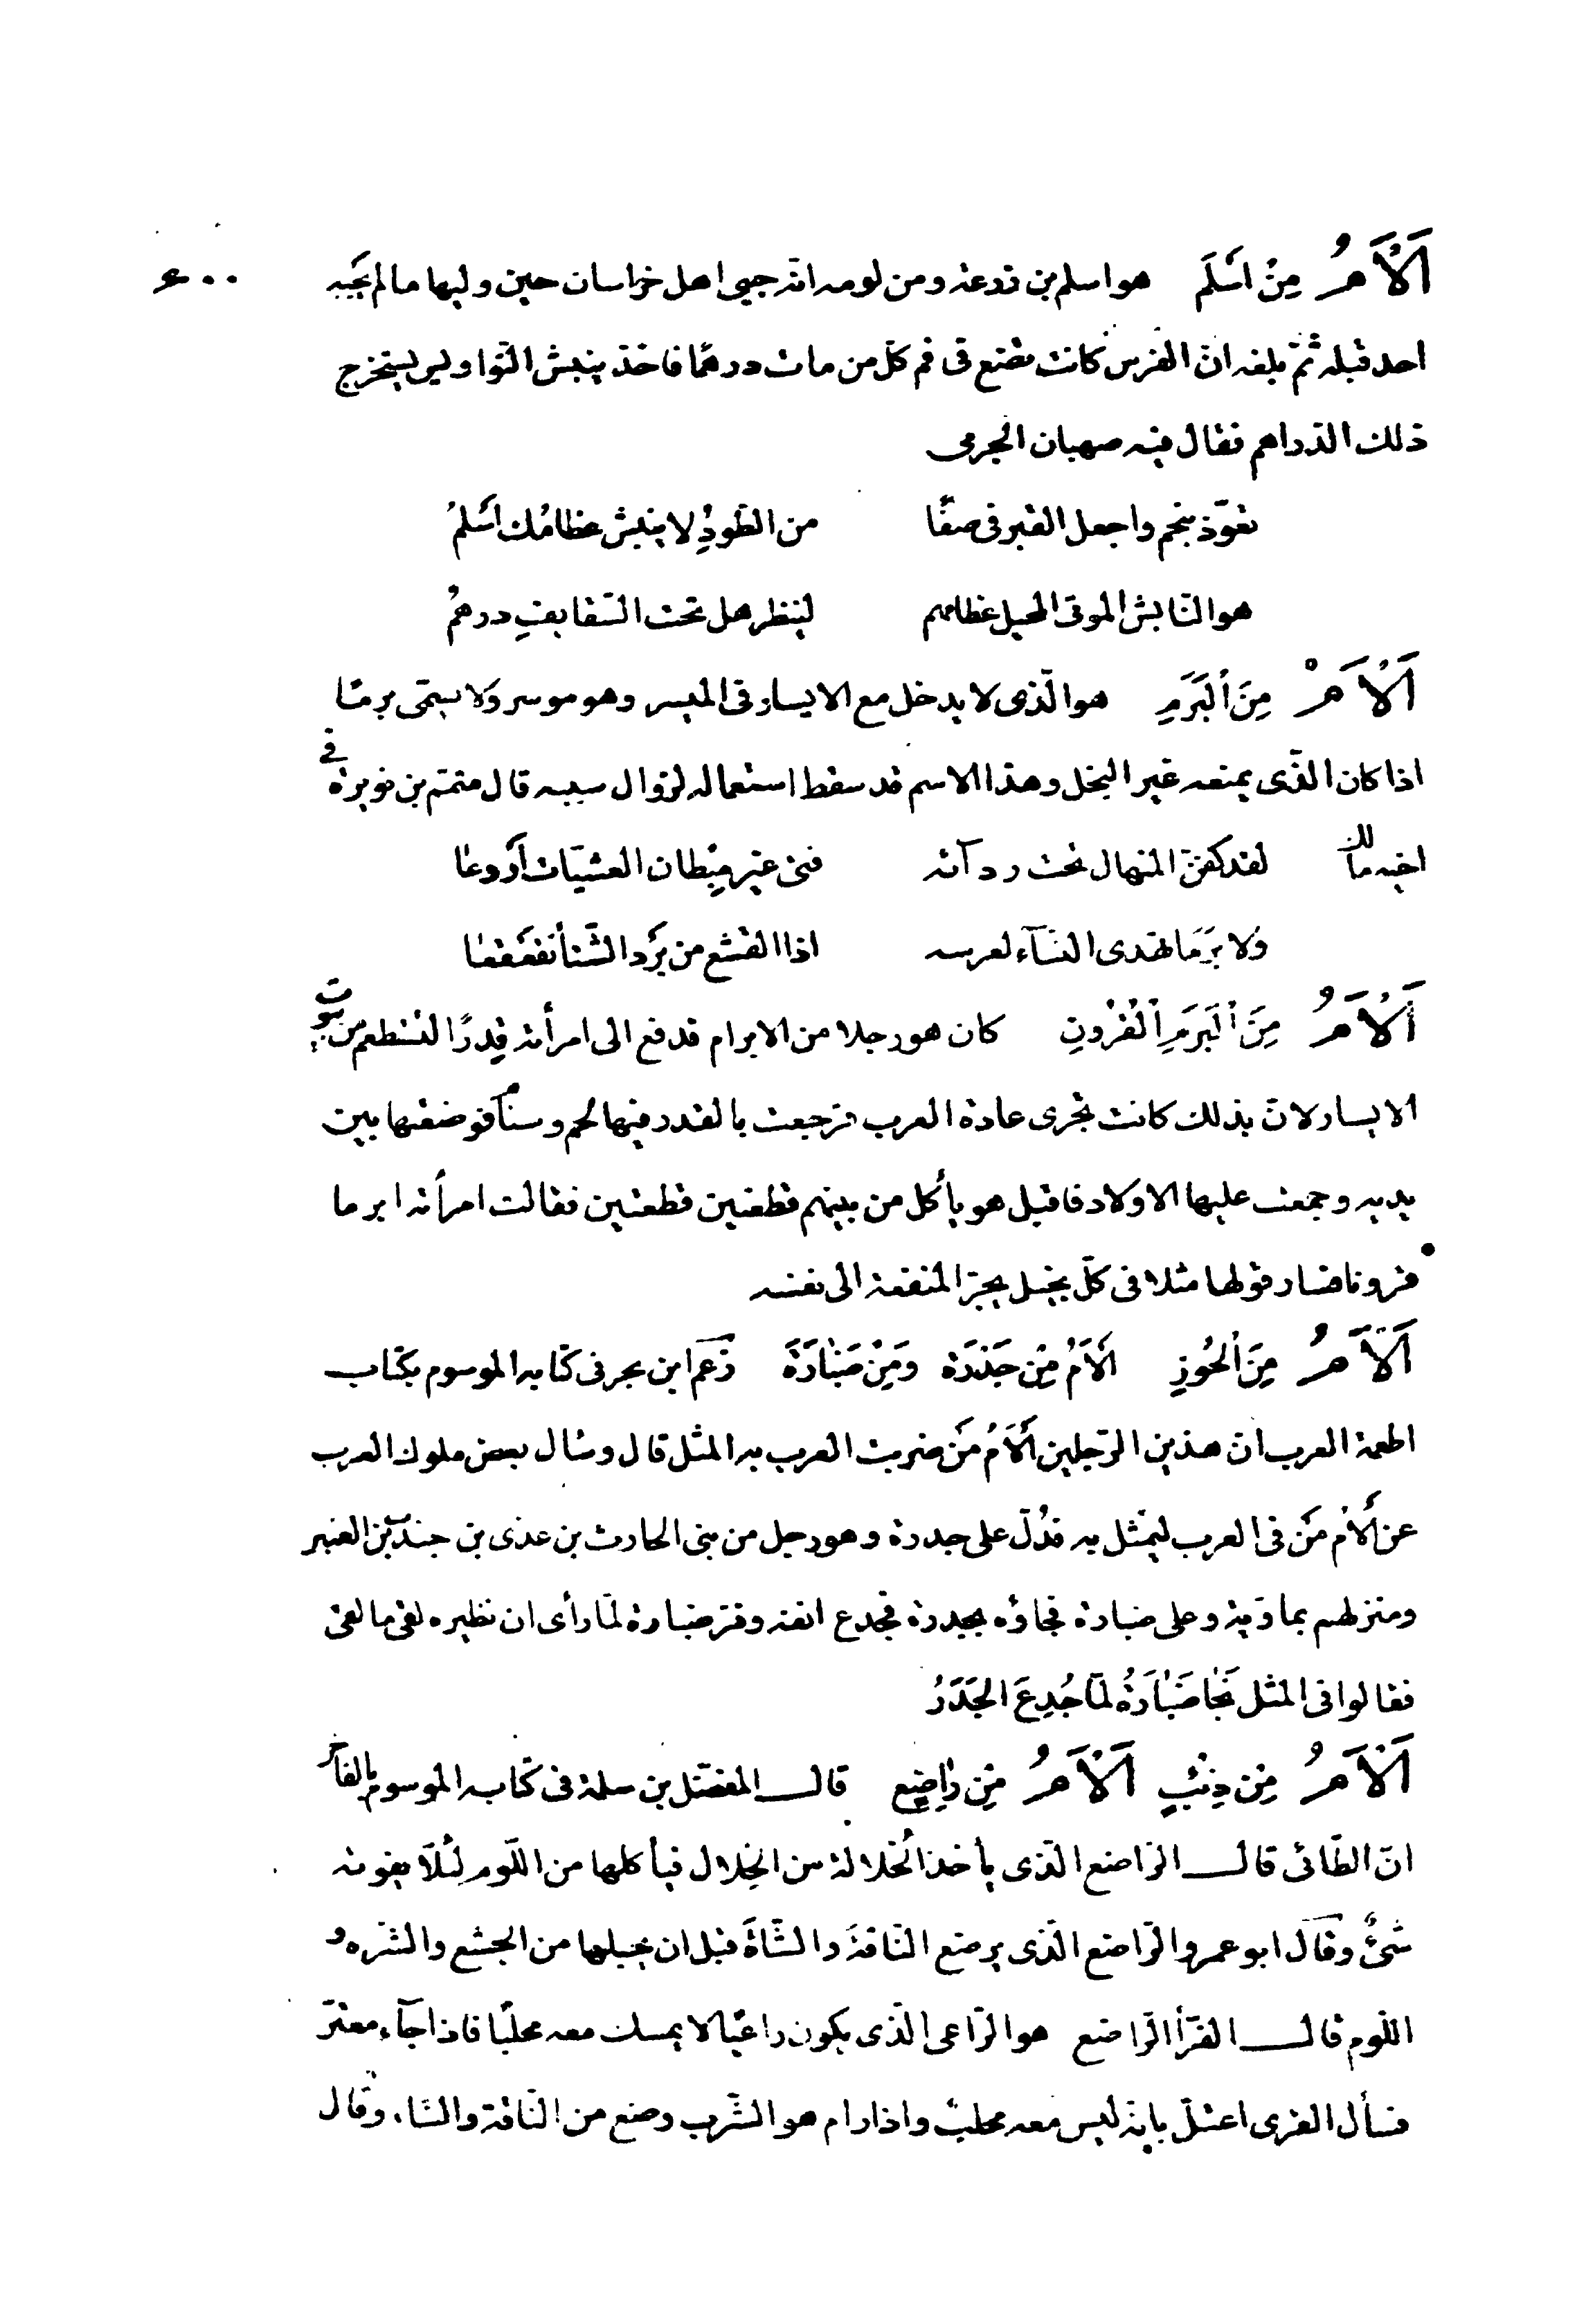 اَلْأَمُ مِنْ اَسْلَمَ هو اسلم بن زرعة ومن لومه انّه جبى اهل خراسان حين وليها ما لم يجبه
احد قبله ثمّ بلغه انّ الفرس كانت تضع فى فم كلّ من مات درهمًا فاخذ ينبش النّواويس ليستخرج
ذلك الدّراهم فقال فيه صهبان الجرمى
تعوّذ بنجم واجعل القبر فى صفًا من الطّودِ لا ينبش عظامُك اَسْلمُ
هو النّابش الموتى المحيل عظامهم لينظر هل تحت السّقايفِ درهمُ
اَلْأَمُ مِنَ اْلبَرَمِ هو الّذى لا يدخل مع الايسار فى الميسر وهو موسر وَلا يسمّى برمًا
اذا كان الّذى يمنعه غير البخل وهذا الاسم قد سقط استعماله لزوال سببه قال متمّم بن نويرة فى
اخيه مالك لقد كفّن المنهال تحت ردآئه فتى غير مِبْطان العشيّات اَرْوعا
وَلا بَرَمًا تهدى النّسآء لعرسه اذا القشع من بَرْد الشّتأ تقعقعا
اَلْأَمُ مِنَ اْلبَرَمِ اْلقَرُونِ كان هو رجلا من الابرام فدفع الى امرأته قِدرًا لتستطعم من بيوت
الايسار لانّ بذلك كانت تجرى عادة العرب فرجعت بالقدر فيها لحم وسنام فوضعتها بين
يديه وجمعت عليها الاولاد فاقبل هو يأكل من بينهم قطعتين قطعتين فقالت امرأته ابرما
قرونا فصار قولها مثلا فى كلّ بخيل يجرّ المنفعة الى نفسه
اَلْأَمُ مِنَ اْلجَوْزِ اَلأَمُ مِنْ جَدَرَة وَمِنْ ضَبَارَةَ زعم ابن بحر فى كتابه الموسوم بكتاب
اطعمة العرب انّ هذين الرّجلين اَلأَمُ مَنْ ضربت العرب به المثل قال وسأل بعض ملوك العرب
عن اَلأَم مَنْ فى العرب ليمثّل به فدُلّ على جدرة وهو رجل من بنى الحارث بن عدى بن جندب بن العنبر
ومنزلهم بماويّة وعلى ضبارة فجاؤه بجدرة فجدع انفه وفرّ ضبارة لمّا رأى ان نظيره لقى ما لقى
فقالوا فى المثل نَجَا ضَبَارَةُ لمّا جُدِعَ الجَدَرَةُ
اَلْأَمُ مِنْ ذِئْبٍ اَلْأَمُ مِنْ رَاضِعٍ قال المفضّل بن سلمة فى كتابه الموسوم بالفاخر
انّ الطّائى قال الرّاضع الّذى يأخذ الخلالة من الخلال فيأكلها من اللّوم لئلّا يفوته
شَىْءٌ وقال ابو عمرو الرّاضع الّذى يرضع النّاقة والشّاة قبل ان يحلبها من الجشع والشّره و
اللّوم قال الفرّأ الرّاضع هو الرّاعى الّذى يكون راعيًا لا يمسك معه محلبًا فاذا جآء معترّ
فسأل القرى اعتلّ بانّه ليس معه محلبٌ واذا رام هو الشّرب رضع من النّاقة والشّاء وقال